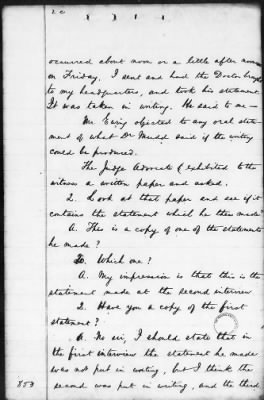 20
occurred about noon or a little after noon
on Friday. I sent and had the Doctor brought
to my headquarters, and took his statement
It was taken in writing. He said to me —
Mr. Ewing objected to any oral state-
ment of what Dr Mudd said if the writing
could be produced.
The Judge Advocate (exhibited to the
witness a written paper and asked.
Q. Look at that paper and see if it
contains the statement which he then made?
A. This is a copy of one of the statements
he made?
Q. Which one?
A. My impression is that this is the
statement made at the second interview
Q. Have you a copy of the first
statement?
A. No sir, I should state that in
the first interview the statement he made
was not put in writing, but I think the
853 second was put in writing, and the third